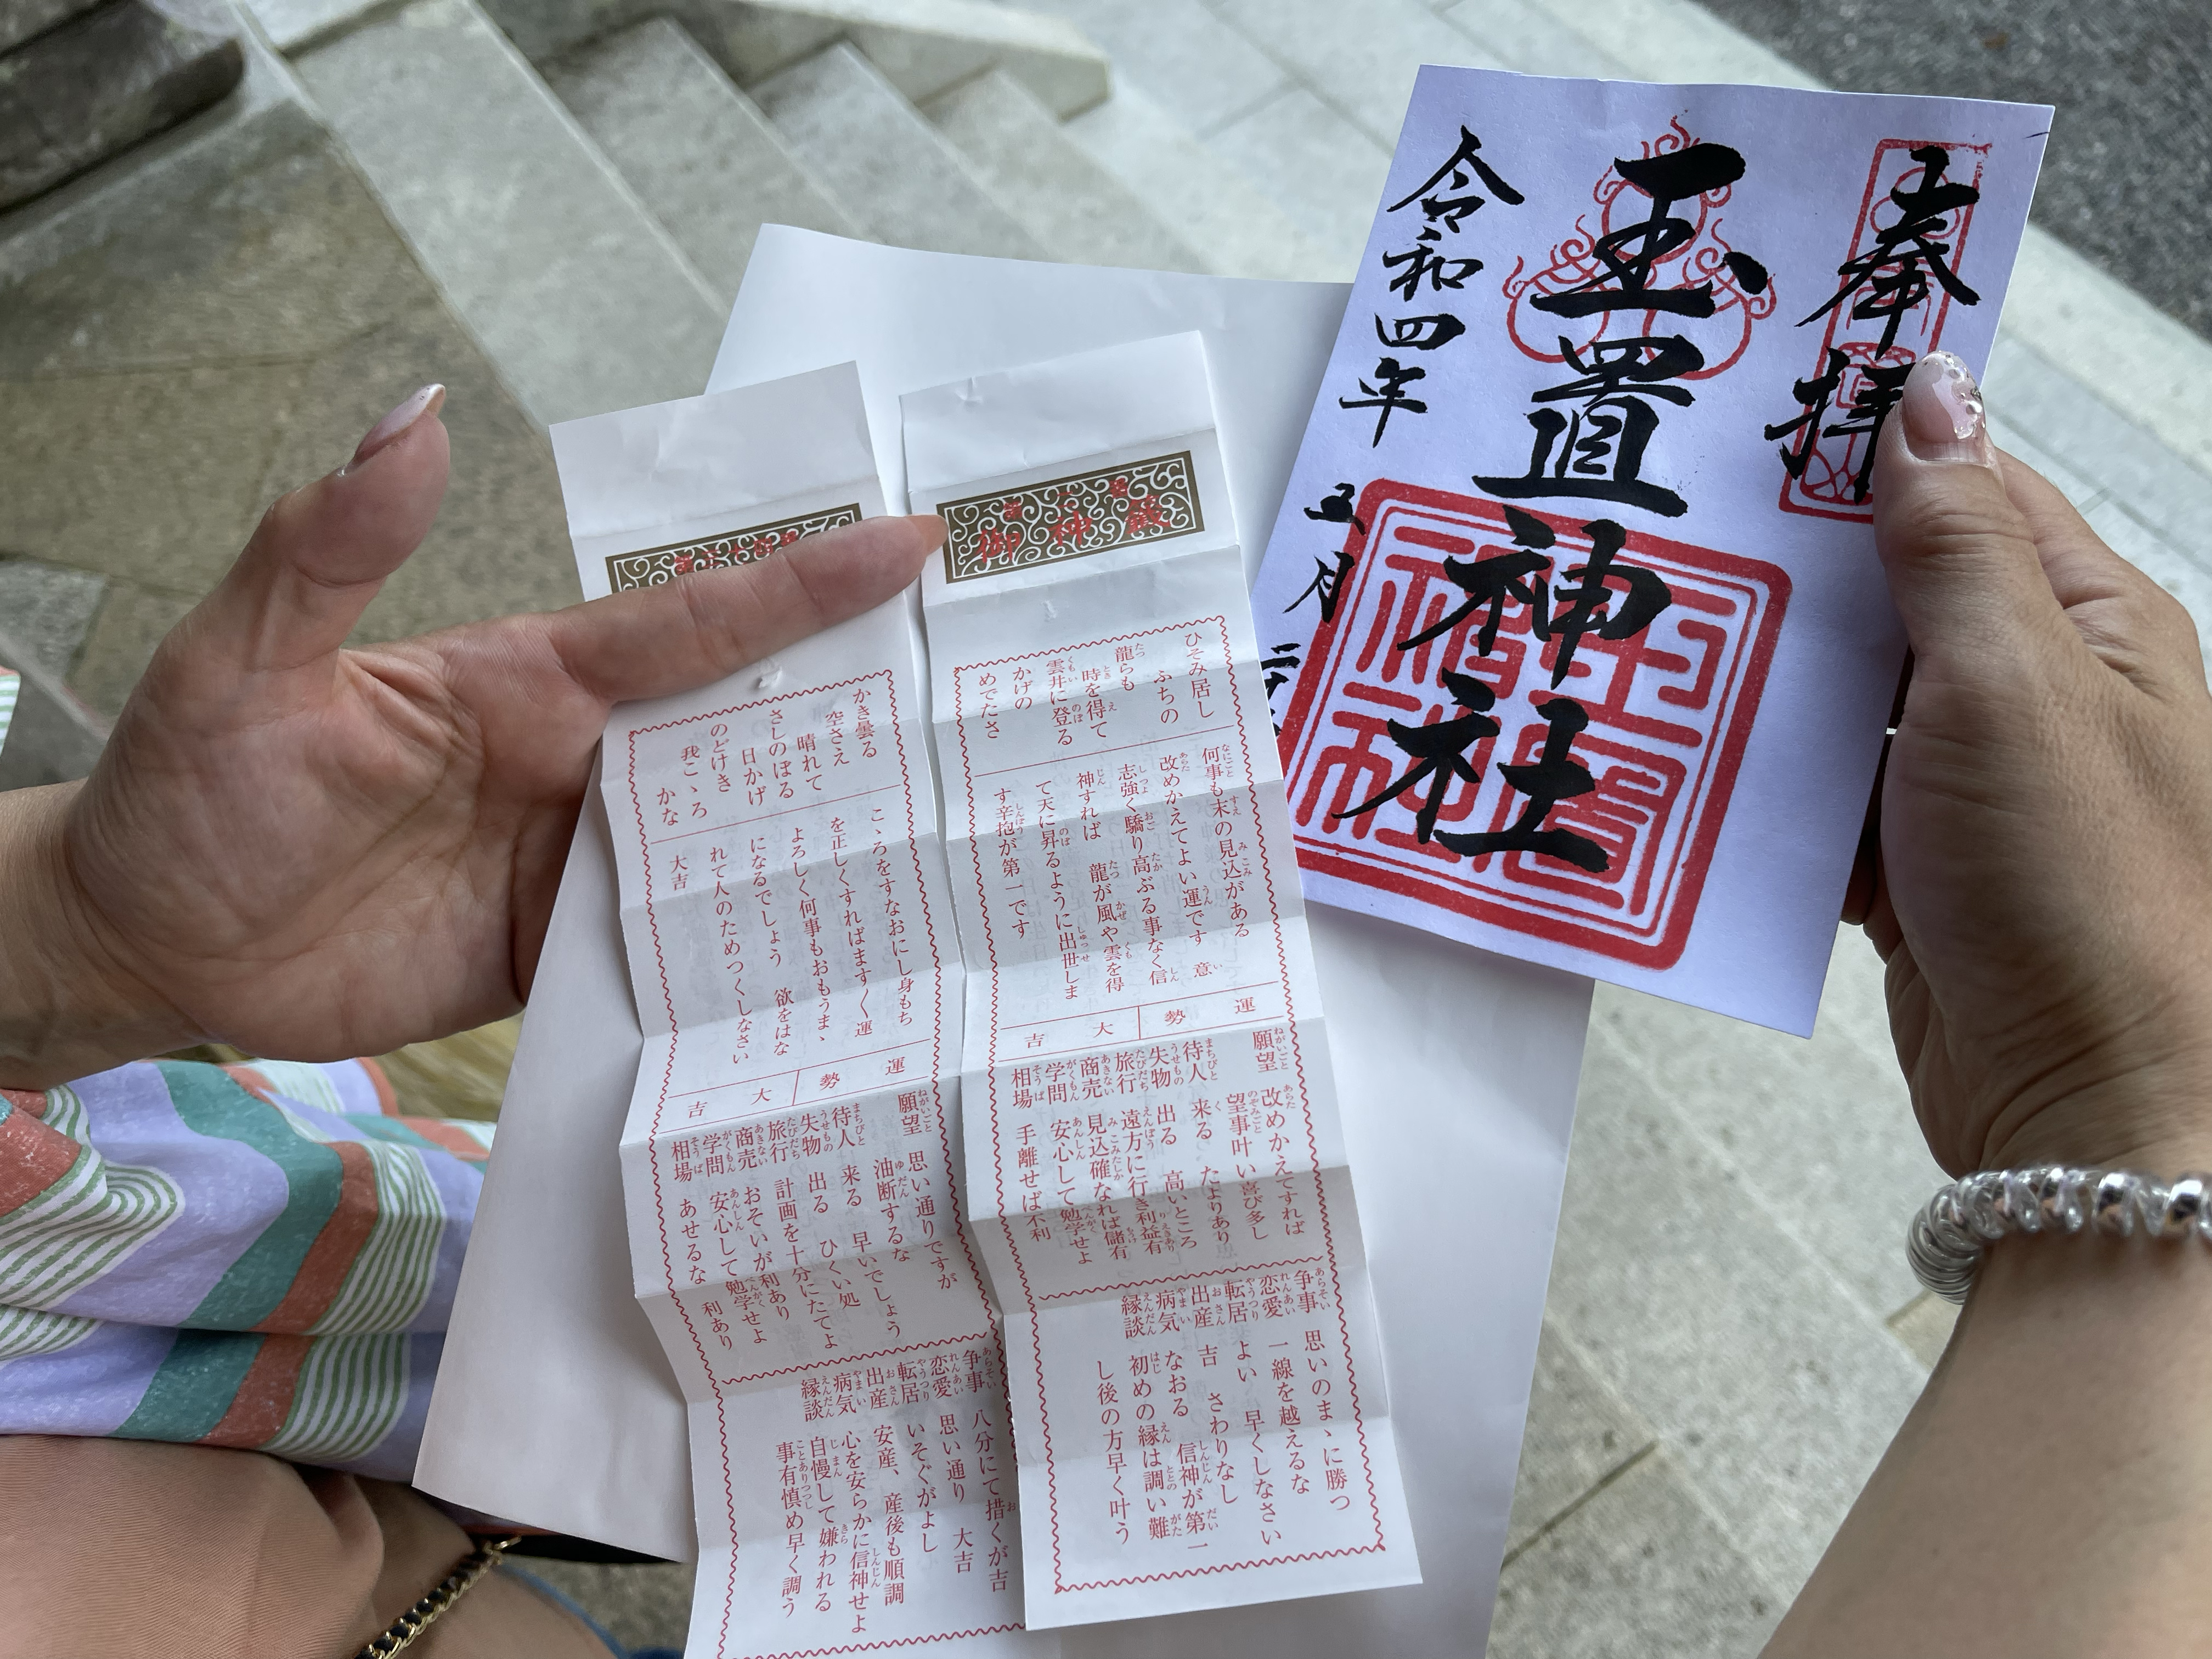 奉拝
玉置神社
令和四年
五月
御神籤
ひそみ居し
ふちの
龍らも
時を得て
雲井に登る
かげの
めでたさ
何事も末の見込がある
改めかえてよい運です 意
志強く驕り高ぶる事なく信
神すれば 龍が風や雲を得
て天に昇るように出世しま
す辛抱が第一です
運勢 大吉
願望 改めかえてすれば
望事叶い喜び多し
待人 来る たよりあり
失物 出る 高いところ
旅行 遠方に行き利益有
商売 見込確なれば儲有
学問 安心して勉学せよ
相場 手離せば不利
争事 思いのまゝに勝つ
恋愛 一線を越えるな
転居 よい 早くしなさい
出産 吉 さわりなし
病気 なおる 信神が第一
縁談 初めの縁は調い難
し後の方早く叶う
かき曇る
空さえ
晴れて
さしのぼる
日かげ
のどけき
我こゝろ
かな
こゝろをすなおにし身もち
を正しくすればますます運
よろしく何事もおもうまゝ
になるでしょう 欲をはな
れて人のためつくしなさい
大吉
運勢 大吉
願望 思い通りですが
油断するな
待人 来る 早いでしょう
失物 出る ひくい処
旅行 計画を十分にたてよ
商売 おそいが利あり
学問 安心して勉学せよ
相場 あせるな 利あり
争事 八分にて措くが吉
恋愛 思い通り 大吉
転居 いそぐがよし
出産 安産、産後も順調
病気 心を安らかに信神せよ
縁談 自慢して嫌われる
事有慎め早く調う